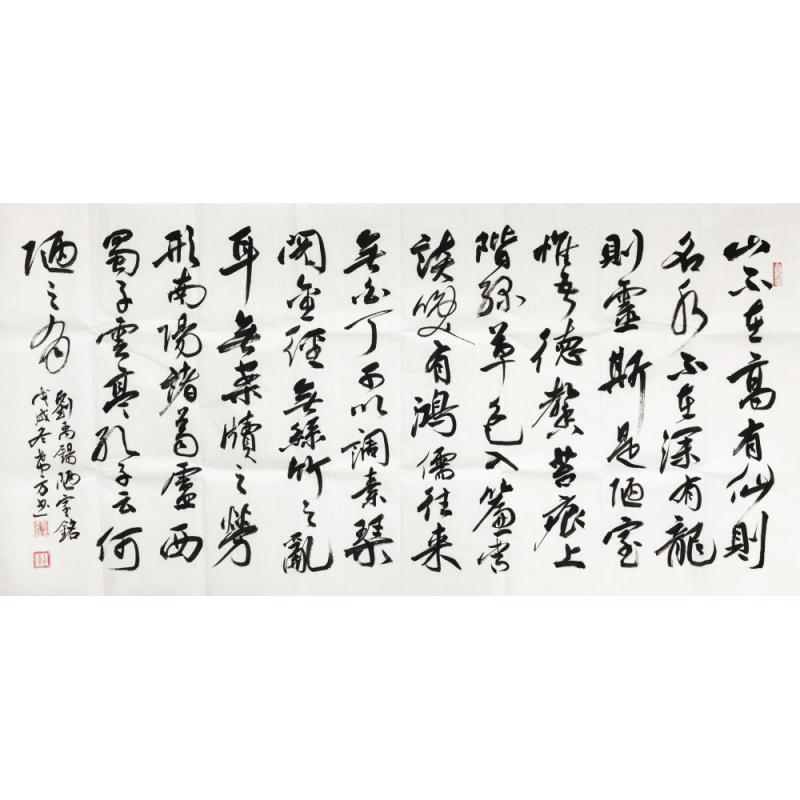 山不在高有仙則
名水不在深有龍
則靈斯是陋室
惟吾德馨苔痕上
階綠草色入簾青
談咲有鴻儒往来
無白丁可以調素琴
閱金經無絲竹之亂
耳無案牘之勞
形南陽諸葛廬西
蜀子雲亭孔子云何
陋之有
劉禹錫陋室銘
戊戌冬方書